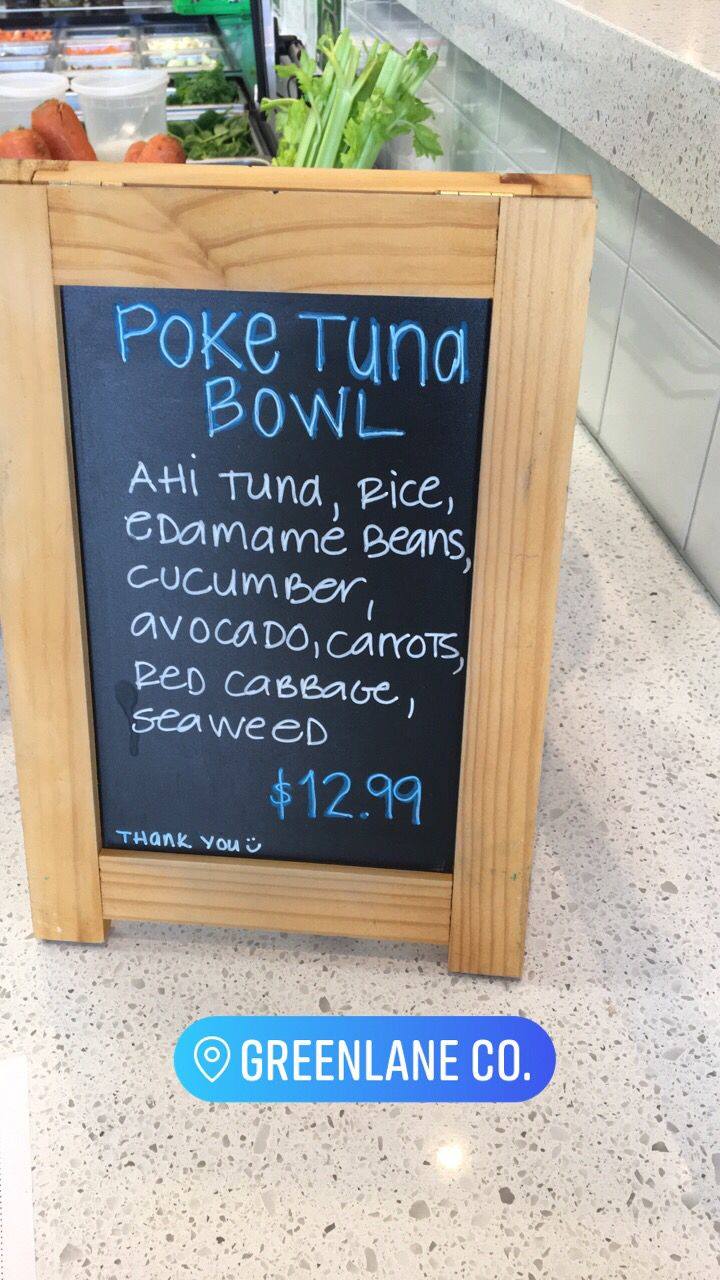 POKE TUNA
BOWL
AHi TUNA, RiCe,
eDamame Beans,
CUCUMBer,
avocaDO, carroTS,
ReD CaBBaGe,
seaweeD
$12.99
THank you :)
GREENLANE CO.